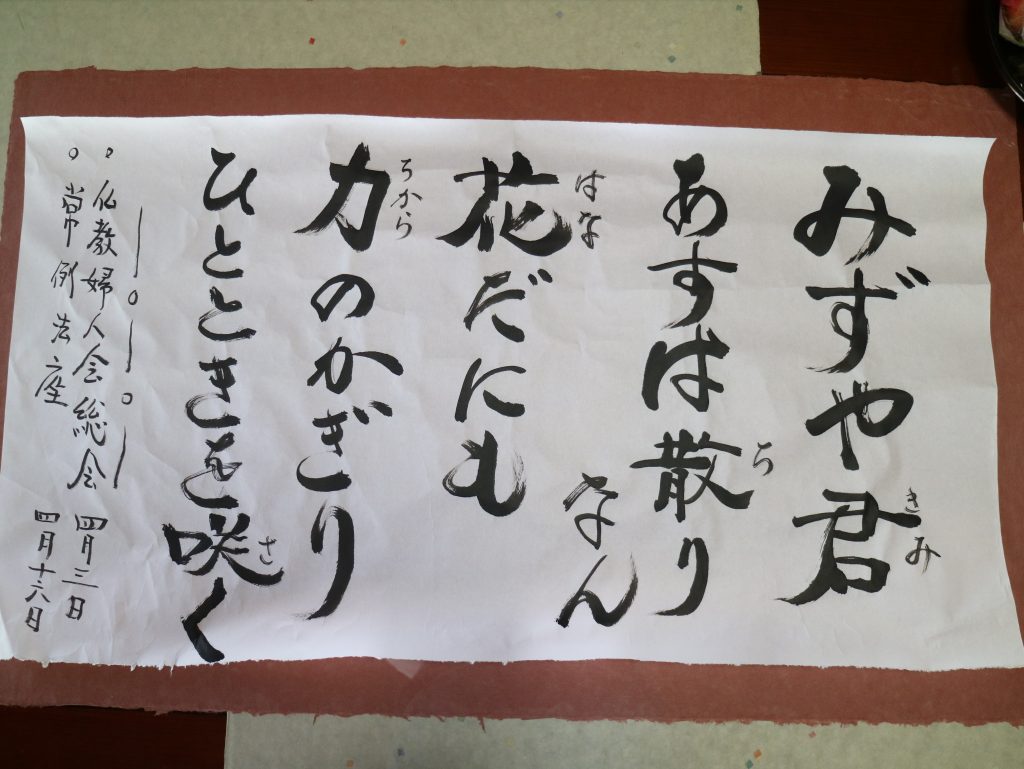 みずや君
きみ
あすは散り
ち
なん
花だにも
はな
力のかぎり
ちから
ひとときを咲く
さ
。仏教婦人会総会 四月三日
。常例法座 四月十六日